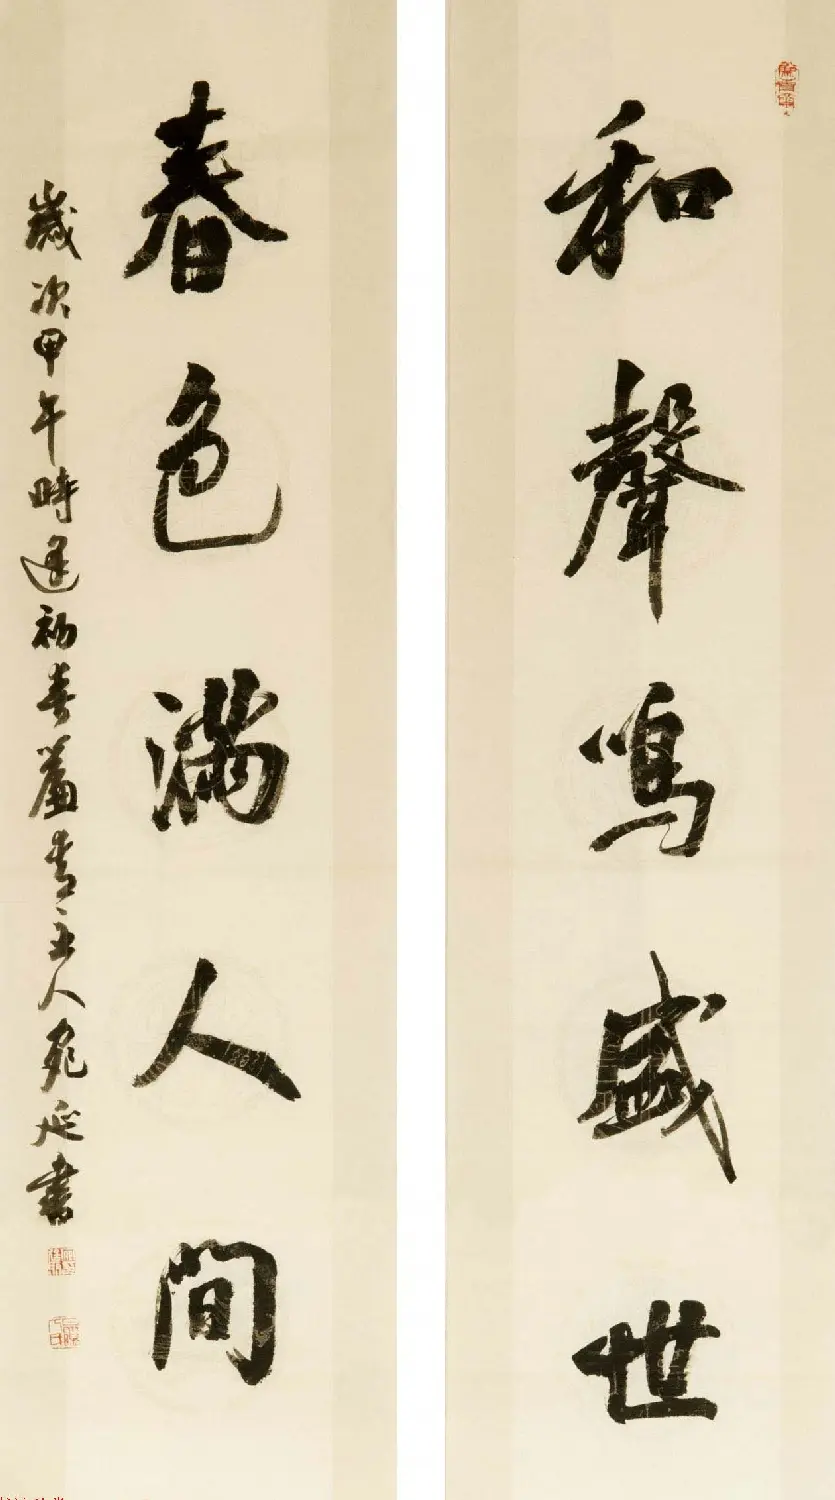 和聲鳴盛世
春色滿人間
歲次甲午時逢初春簾青主人宛延書